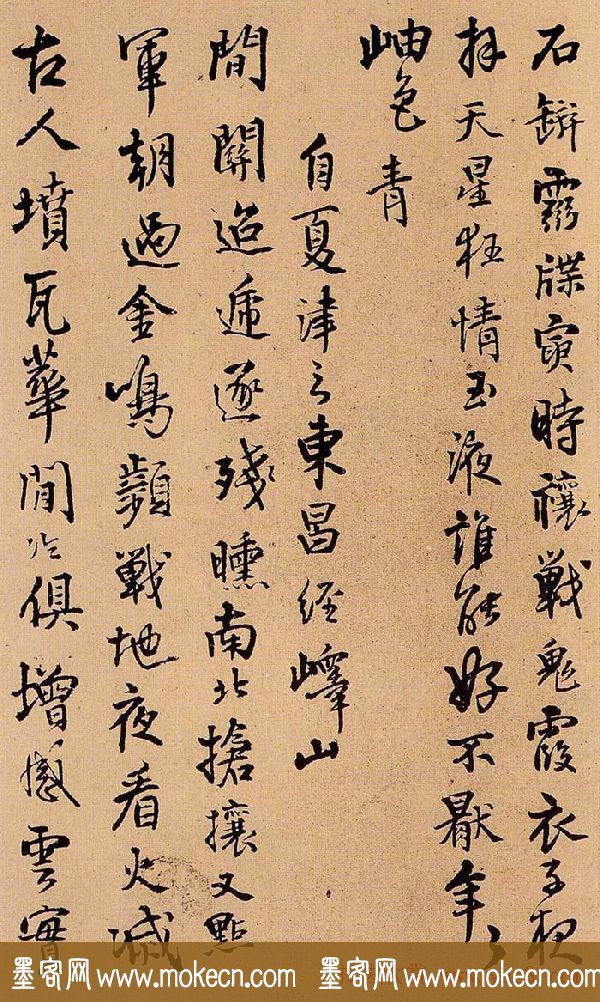 石霛牒寅時禳戰鬼霞衣子夜
拜天星狂情玉液誰能好不厭年
岫色青
自夏津之東昌經嶧山
間關迢遞逐殘曛南北搶攘又點
軍朝過金鳴戰地夜看火滅
古人墳瓦華閒冷俱增感雲
墨客网 www.mokecn.com 墨客网 www.mokecn.com